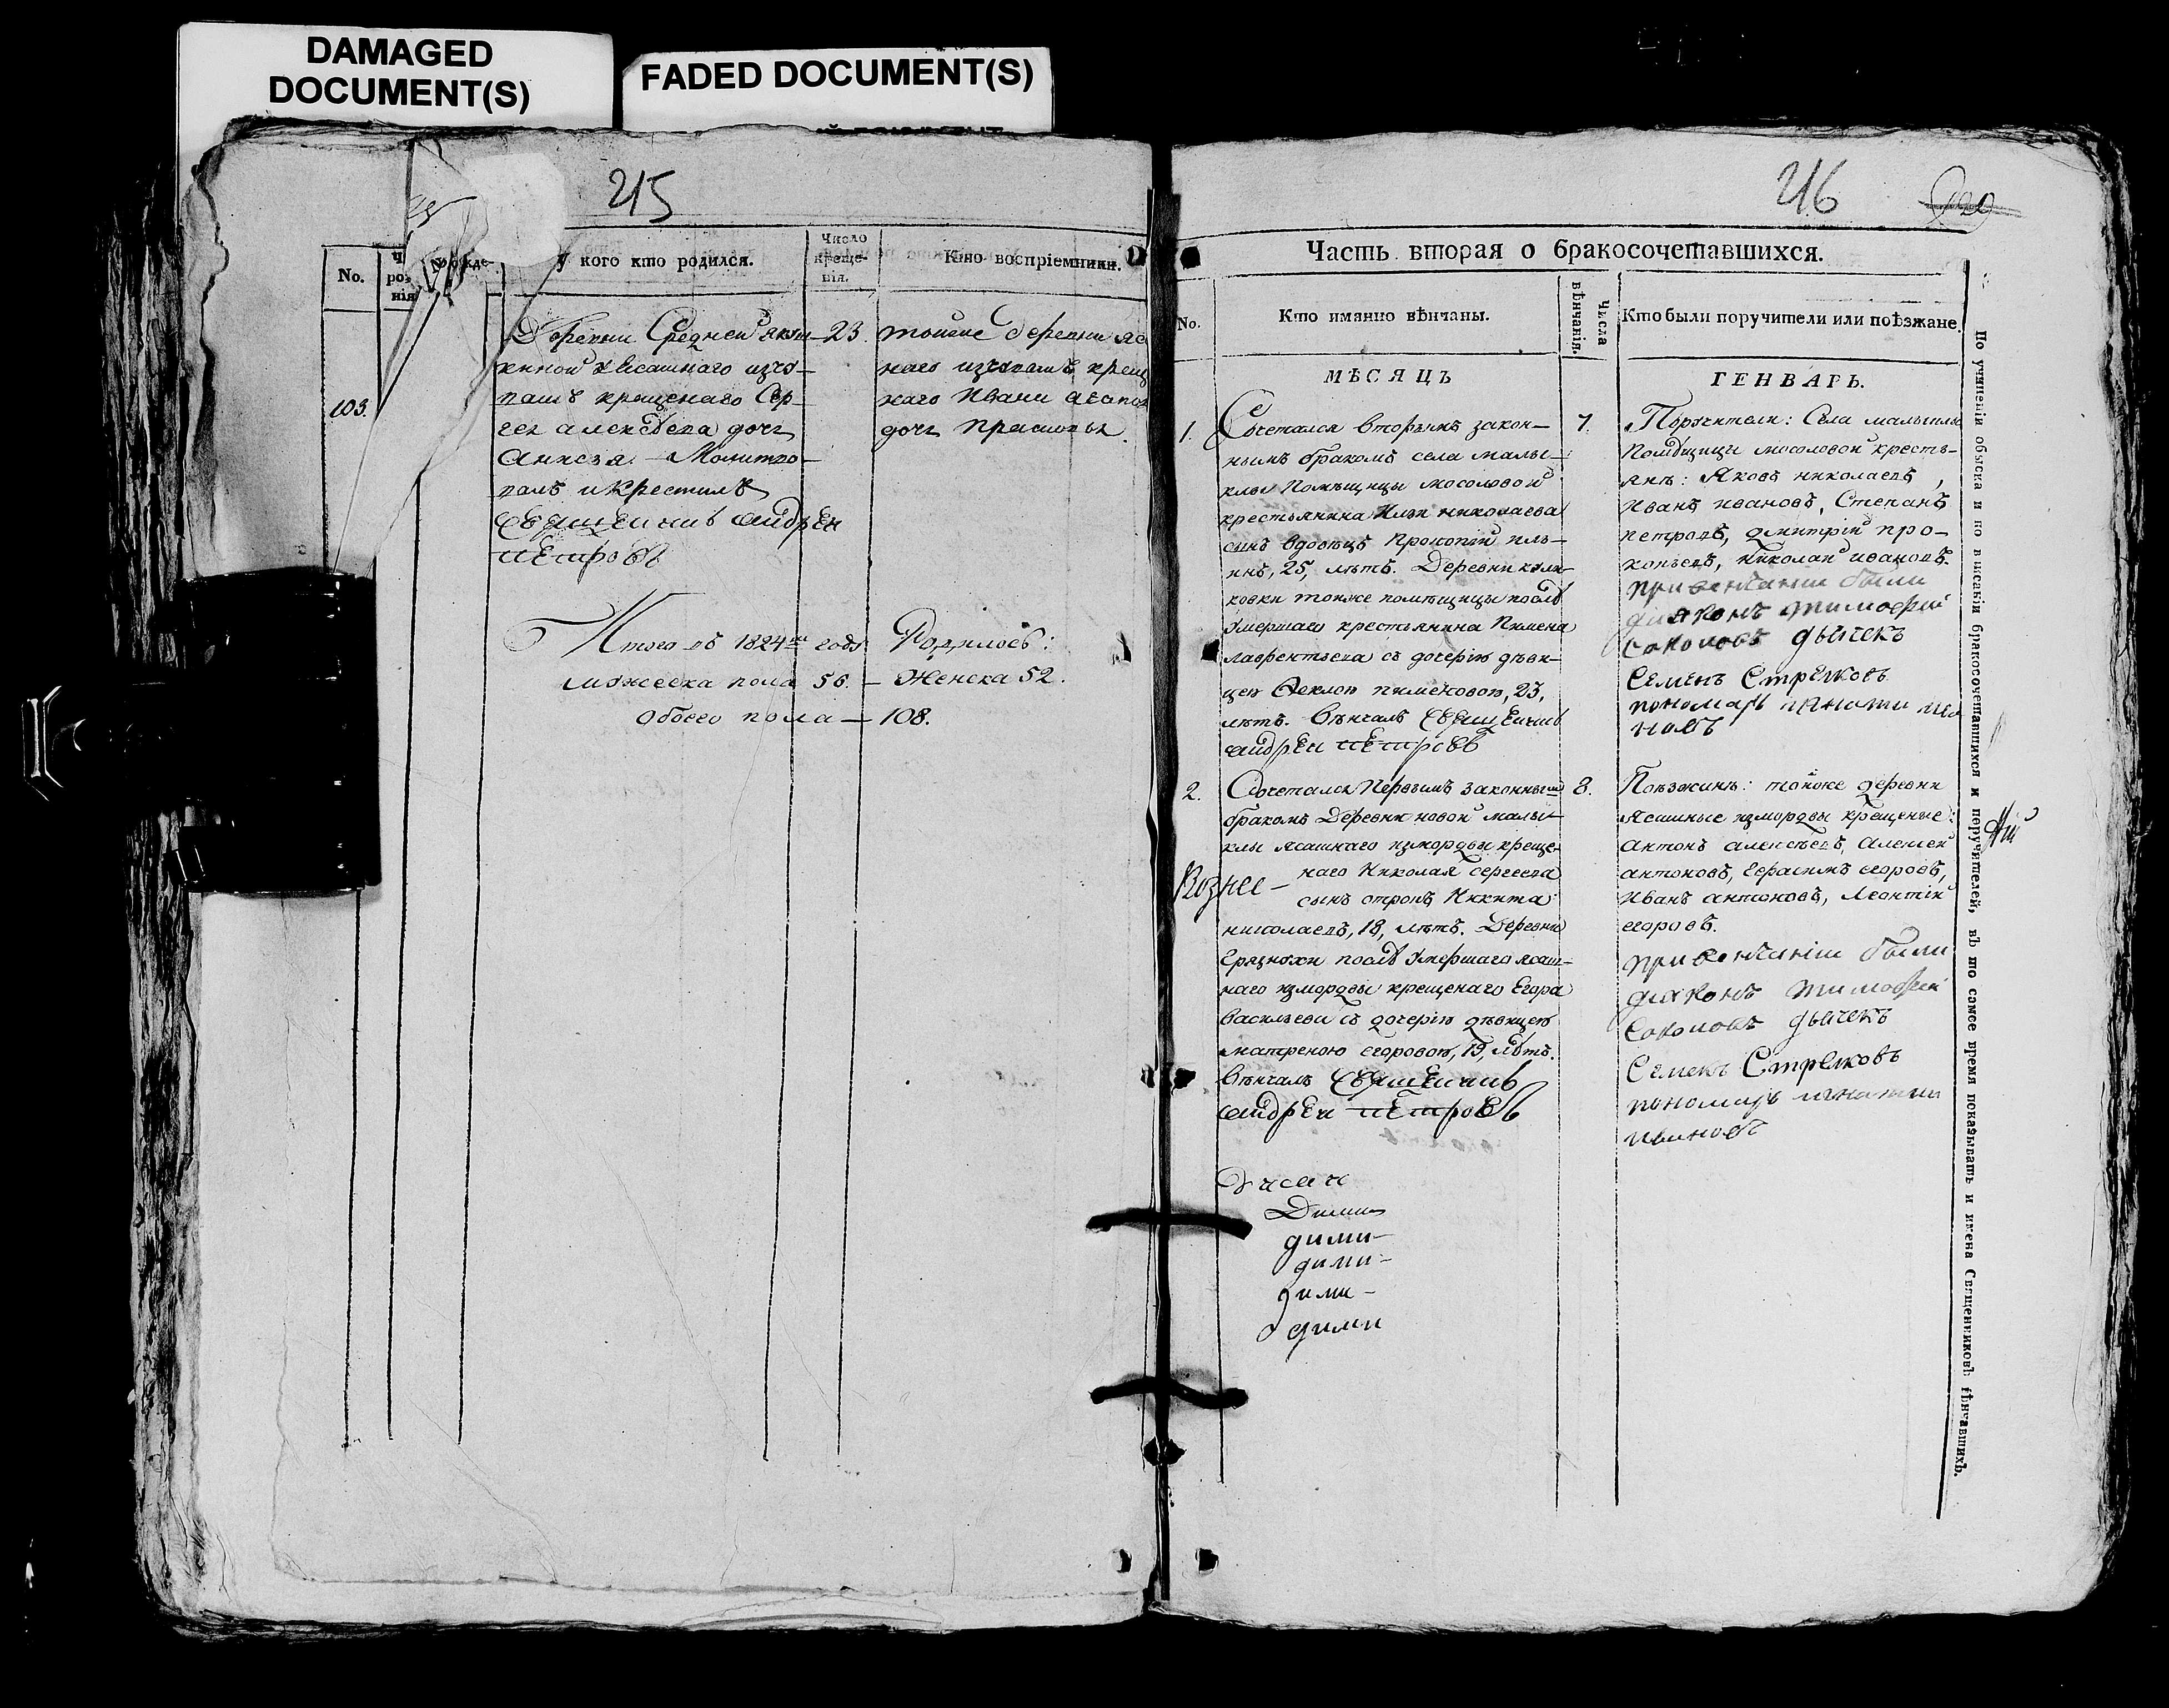 DAMAGED
DOCUMENT(S)
FADED DOCUMENT(S)
215
No.
кого кто родился.
Число
креще-
нія.
Кто воспріемники.
103.
Деревни Средней
пашъ крещенаго Сер-
гея алексѣева дочь
Анисья. Молитво-
валъ и крестилъ
священникъ андрей
петровъ
23.
тойже деревни
наго изчувашъ крещ
наго Ивана
дочь
Итого въ 1824мъ годѣ Родилось:
мужеска пола 56. — Женска 52.
обоего пола — 108.
216
Часть вторая о бракосочетавшихся.
No.
Кто имянно вѣнчаны.
Числа
вѣнчанія.
Кто были поручители или поѣзжане.
МѢСЯЦЪ
ГЕНВАРЬ.
1.
Сочетался вторымъ закон-
нымъ бракомъ села малы-
клы Помѣщицы мосоловой
крестьянина Ильи николаева
сынъ вдовецъ Прокопій иль-
инъ, 25, лѣтъ. Деревни кули-
ковки тоиже помѣщицы послѣ
умершаго крестьянина Пимена
лаврентьева съ дочерію дѣви-
цею Ѳеклою пименовою, 23,
лѣтъ. вѣнчалъ священникъ
андрей петровъ
7.
Поручители: Села малыклы
Помѣщицы мосоловой кресть-
янѣ: Яковъ николаевъ,
иванъ ивановъ, Степанъ
петровъ, дмитрій про-
копьевъ, николай ивановъ.
при венчаніи были
диаконъ тимофей
соколовъ дьячекъ
Семенъ Стрелковъ
пономарь игнатий ива
новъ
2.
Сочетался Первымъ законнымъ
бракомъ Деревни новой малы-
клы ясашнаго измордвы креще-
наго Николая сергеева
сынъ отрокъ Никита
николаевъ, 18, лѣтъ. Деревни
грязнухи послѣ умершаго ясаш-
наго измордвы крещенаго Егора
васильева съ дочерію дѣвицею
матреною егоровою, 19, лѣтъ.
вѣнчалъ священникъ
андрей петровъ
Вознес —
8.
Поѣзжанѣ: тойже деревни
ясашные измордвы крещеные:
антонъ алексѣевъ, алексей
антоновъ, герасимъ егоровъ,
иванъ антоновъ, леонтій
егоровъ.
при венчаніи были
диаконъ тимофей
соколовъ дьячекъ
Семенъ Стрелковъ
пономарь игнатий
ивановъ
дими-
дими-
дими-
дими
По учиненіи обыска и по вписаніи бракосочетавшихся и поручителей, въ то самое время показывать и имена Священниковъ вѣнчавшихъ.